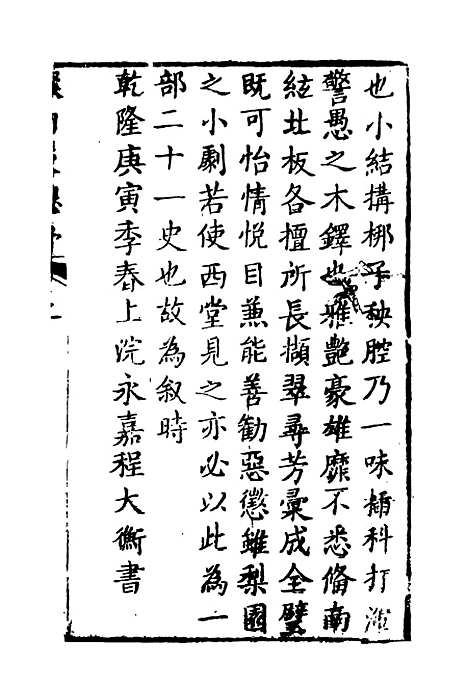 也小結搆梆子秧腔乃一味插科打渾
警愚之木鐸也雅艷豪雄靡不悉偹南
絃北板各擅所長擷翠尋芳彚成全璧
既可怡情悦目兼能善勸惡懲雖梨園
之小劇若使西堂見之亦必以此為一
部二十一史也故為叙時
乾隆庚寅季春上浣永嘉程大衡書